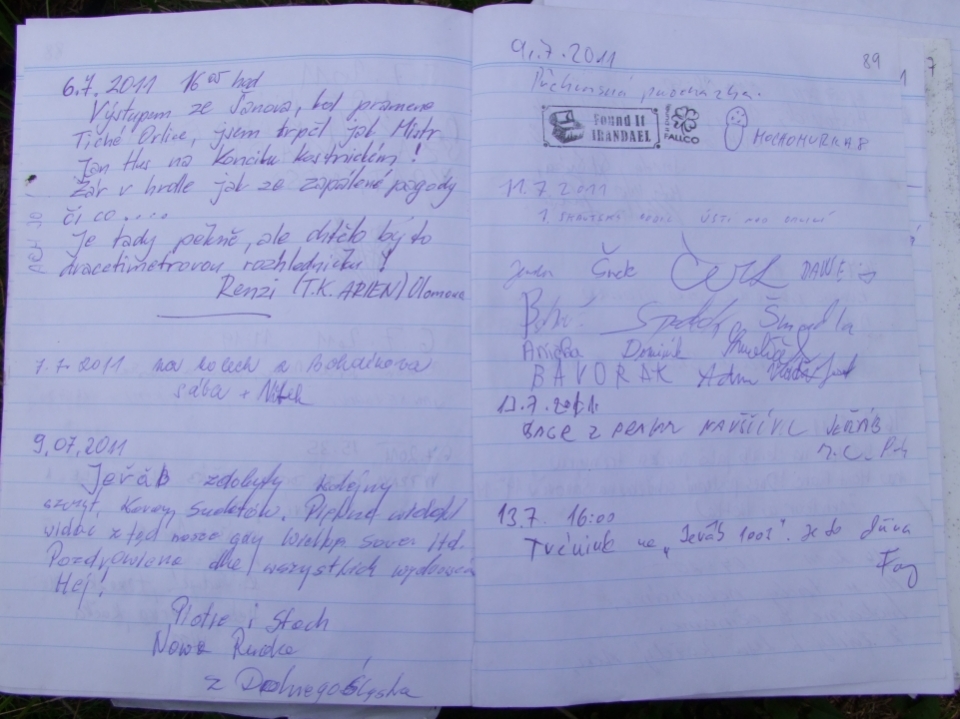 6.7. 2011 16 05 hod
Výstupem ze Janova, kol pramene
Tiché Orlice, jsem trpěl jak Mistr
Jan Hus na Koncilu Kostnickém!
Žár v hrdle jak ze zapálené pagody
či co....
Je tady pěkně, ale chtělo by to
dvacetimetrovou rozhledničku!
Renzi (T.K. ARIEN) Olomouc
7.7.2011 na kolech z Boháčkova
Sába +
9.07.2011
Jeřáb zdobyty kolejny
szczyt, Korony Sudetów. Piękne widoki
widac z tąd nasze góry Wielką Sowę itd.
Pozdrowienia dla wszystkich wędrowców
Hej!
Piotr i Stach
Nowa Ruda
z Dolnego Śląska
89
9.7.2011
Found It
IRANDAEL
FALLCO
MOCHOMURKA8
11.7 2011
1. SKAUTSKÝ ODDÍL ÚSTÍ NAD ORLICÍ
Šnek DAWE
Anička Dominik
BAVORÁK Adam
13.7.2011
BAGR Z PRAHY NAVŠTÍVIL JEŘÁB
13.7. 16:00
Trénink na „Jeřáb 1003". Je to